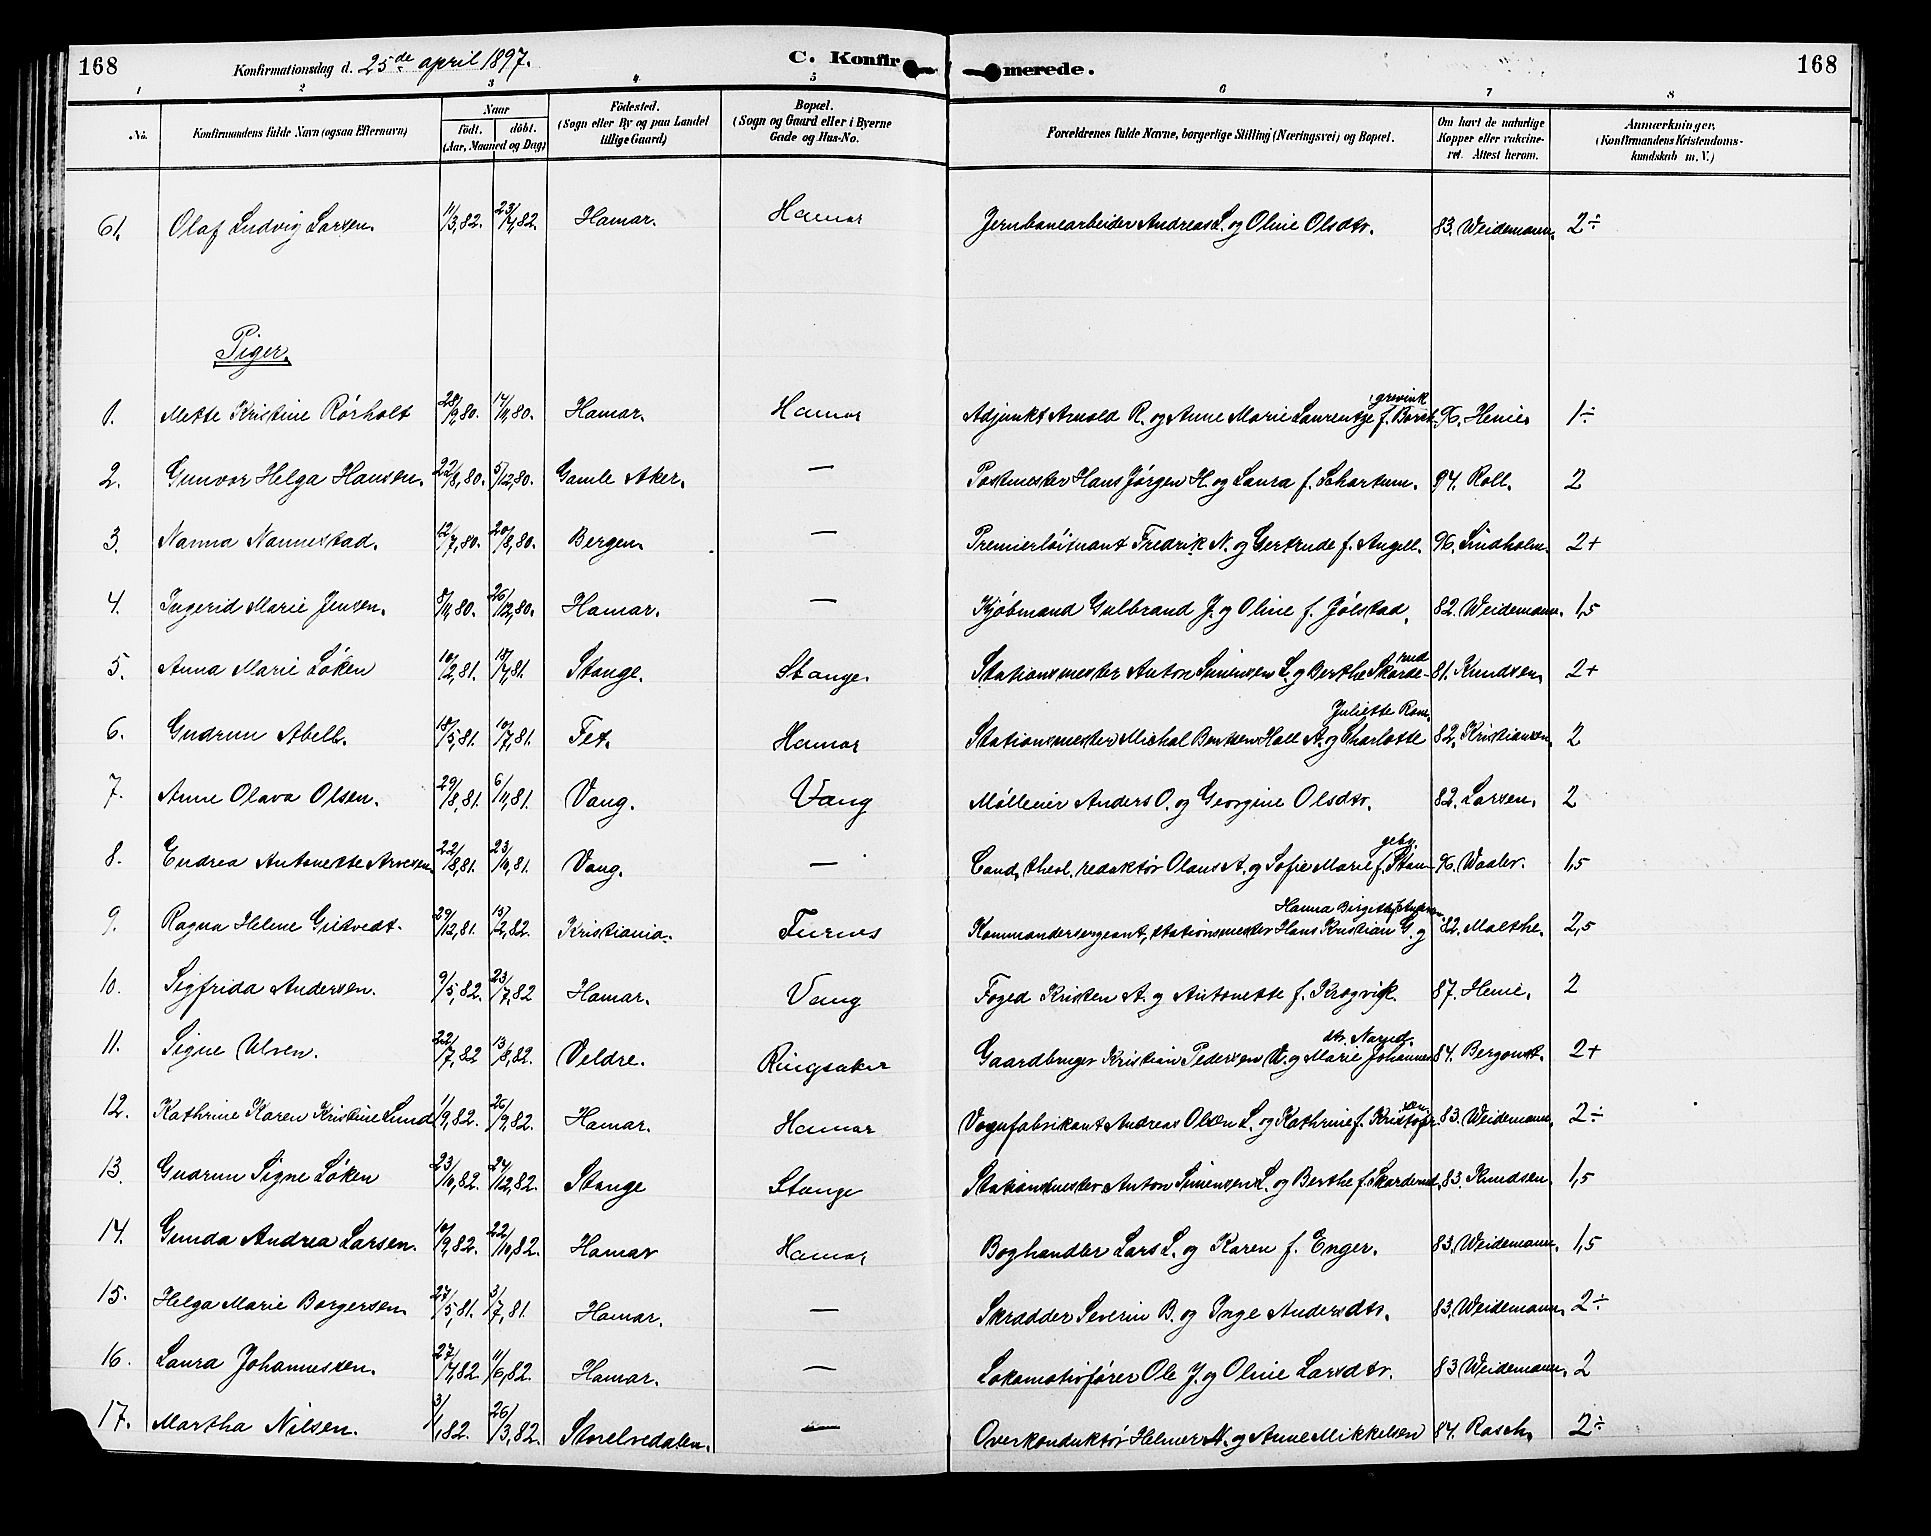 168 Konfirmationsdag d. 25de april 1897. C. Konfir merede. 168
1 2 3 4 5 6 7 8
No. Konfirmandens fulde Navn (ogsaa Efternavn) Naar født. døbt. (Aar, Maaned og Dag) Fødested. (Sogn eller By og paa Landet tillige Gaard) Bopæl. (Sogn og Gaard eller i Byerne Gade og Hus-No. Forældrenes fulde Navne, borgerlige Stilling (Næringsvei) og Bopæl. Om havt de naturlige Kopper eller vakcineret. Attest herom. Anmærkninger. (Konfirmandens Kristendomskundskab m. V.)
61. Olaf Ludvig Larsen. 11/3,82. 23/4,82. Hamar. Hamar Jernbanearbeider Andreas L. og Oline Olsdtr. 83. Weidemann. 2÷
Piger.
1. Mette Kristine Rørholt 28/9,80. 14/11,80. Hamar. Hamar Adjunkt Arnold R. og Anne Marie Laurentze f. Borchgrevink 96. Henie 1÷
2. Gunvor Helga Hansen. 22/8,80. 5/12,80. Gamle Aker. — Postmester Hans Jørgen H. og Laura f. Schartum. 94. Roll. 2
3. Nanna Nannestad. 12/7,80. 20/8,80. Bergen — Premierløitnant Fredrik N. og Gertrude f. Angell. 96. Lindholm. 2+
4. Ingerid Marie Jensen. 8/11,80. 26/12,80. Hamar. — Kjøbmand Gulbrand J. og Oline f. Jølstad. 82. Weidemann. 1,5
5. Anna Marie Løken 10/2,81. 15/4,81. Stange. Stange. Stationsmester Anton Simensen L. og Berthe Skorderud 81. Knudsen. 2+
6. Gudrun Abell. 18/5,81. 10/7,81. Fet. Hamar Stationsmester Michal Bentzen Holl A. og Charlotte Juliette Rom. 82. Kristiansen. 2
7. Anne Olava Olsen. 29/8,81. 6/11,81. Vang. Vang Møllerier Anders O. og Georgine Olsdtr. 82. Larsen. 2
8. Endrea Antonette Arvesen 22/8,81. 23/10,81. Vang. — Cand. theol. redaktør Olaus A. og Sofie Marie f. Stangeby 96. Waaler. 1,5
9. Ragna Helene Gutvedt. 29/12,81. 15/2,82. Kristiania. Furnes Kommandersergeant, stationsmester Hans Kristian G. og Hanna Birgitte 82. Malthe. 2,5
10. Sigfrida Andersen. 9/5,82. 23/7,82 Hamar. Vang Foged Kristen A. og Antonette f. Krogvik. 87. Henie. 2
11. Signe Ulven. 22/7,82 13/8,82. Veldre. Ringsaker Gaardbruger Kristian Pedersen U. og Marie Johannesdtr. Narud. 84. Bergonst. 2+
12. Kathrine Karen Kristine Lund 1/9,82. 26/9,82. Hamar. Hamar Vognfabrikant Andreas Olsen L. og Kathrine f. Kristofersen 83. Weidemann. 2÷
13. Gudrun Signe Løken 23/10,82. 27/12,82. Stange Stange Stationsmester Anton Simensen L. og Berthe f. Skorderud. 83. Knudsen. 1,5
14. Gunda Andrea Larsen. 10/9,82. 22/10,82. Hamar Hamar Boghandler Lars L. og Karen f. Enger. 83. Weidemann. 1,5
15. Helga Marie Borgersen. 27/5,81. 3/7,81. Hamar. — Skrædder Severin B. og Inge Andersdtr. 83. Weidemann. 2÷
16. Laura Johannessen. 27/4,82. 11/6,82. Hamar. — Lokomotivfører Ole J. og Oline Larsdtr. 83 Weidemann. 2
17. Martha Nilsen. 3/1,82. 26/3,82. Storelvedalen. — Overkonduktør Helmer N. og Anne Mikkelsen 84. Rasch. 2÷